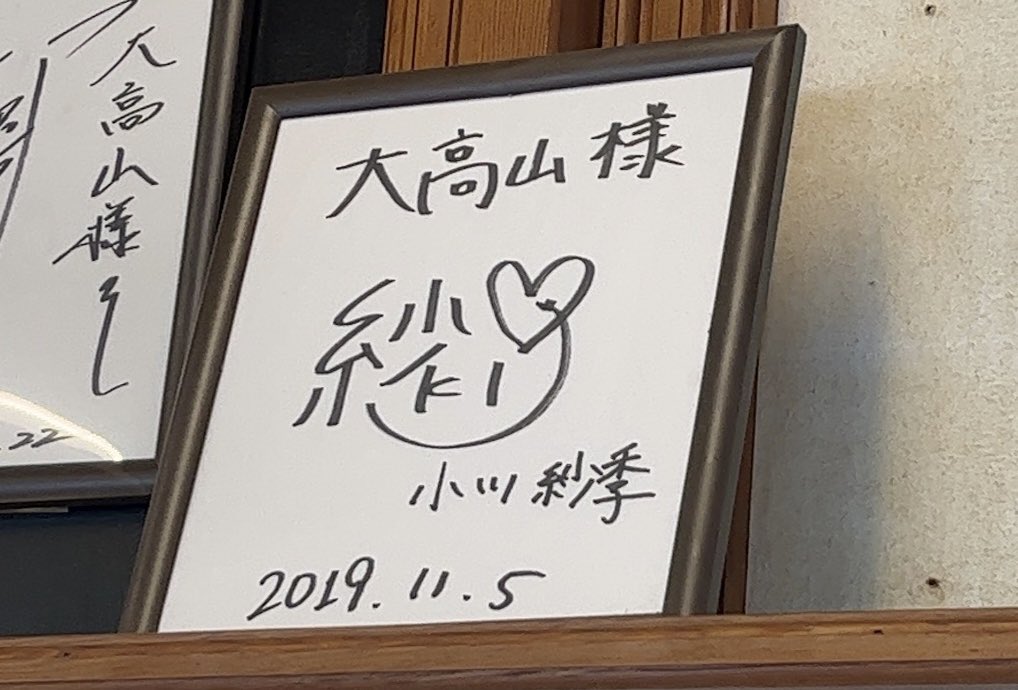 大高山様
紗
KI
小川紗季
2019.11.5
大高山様
.22